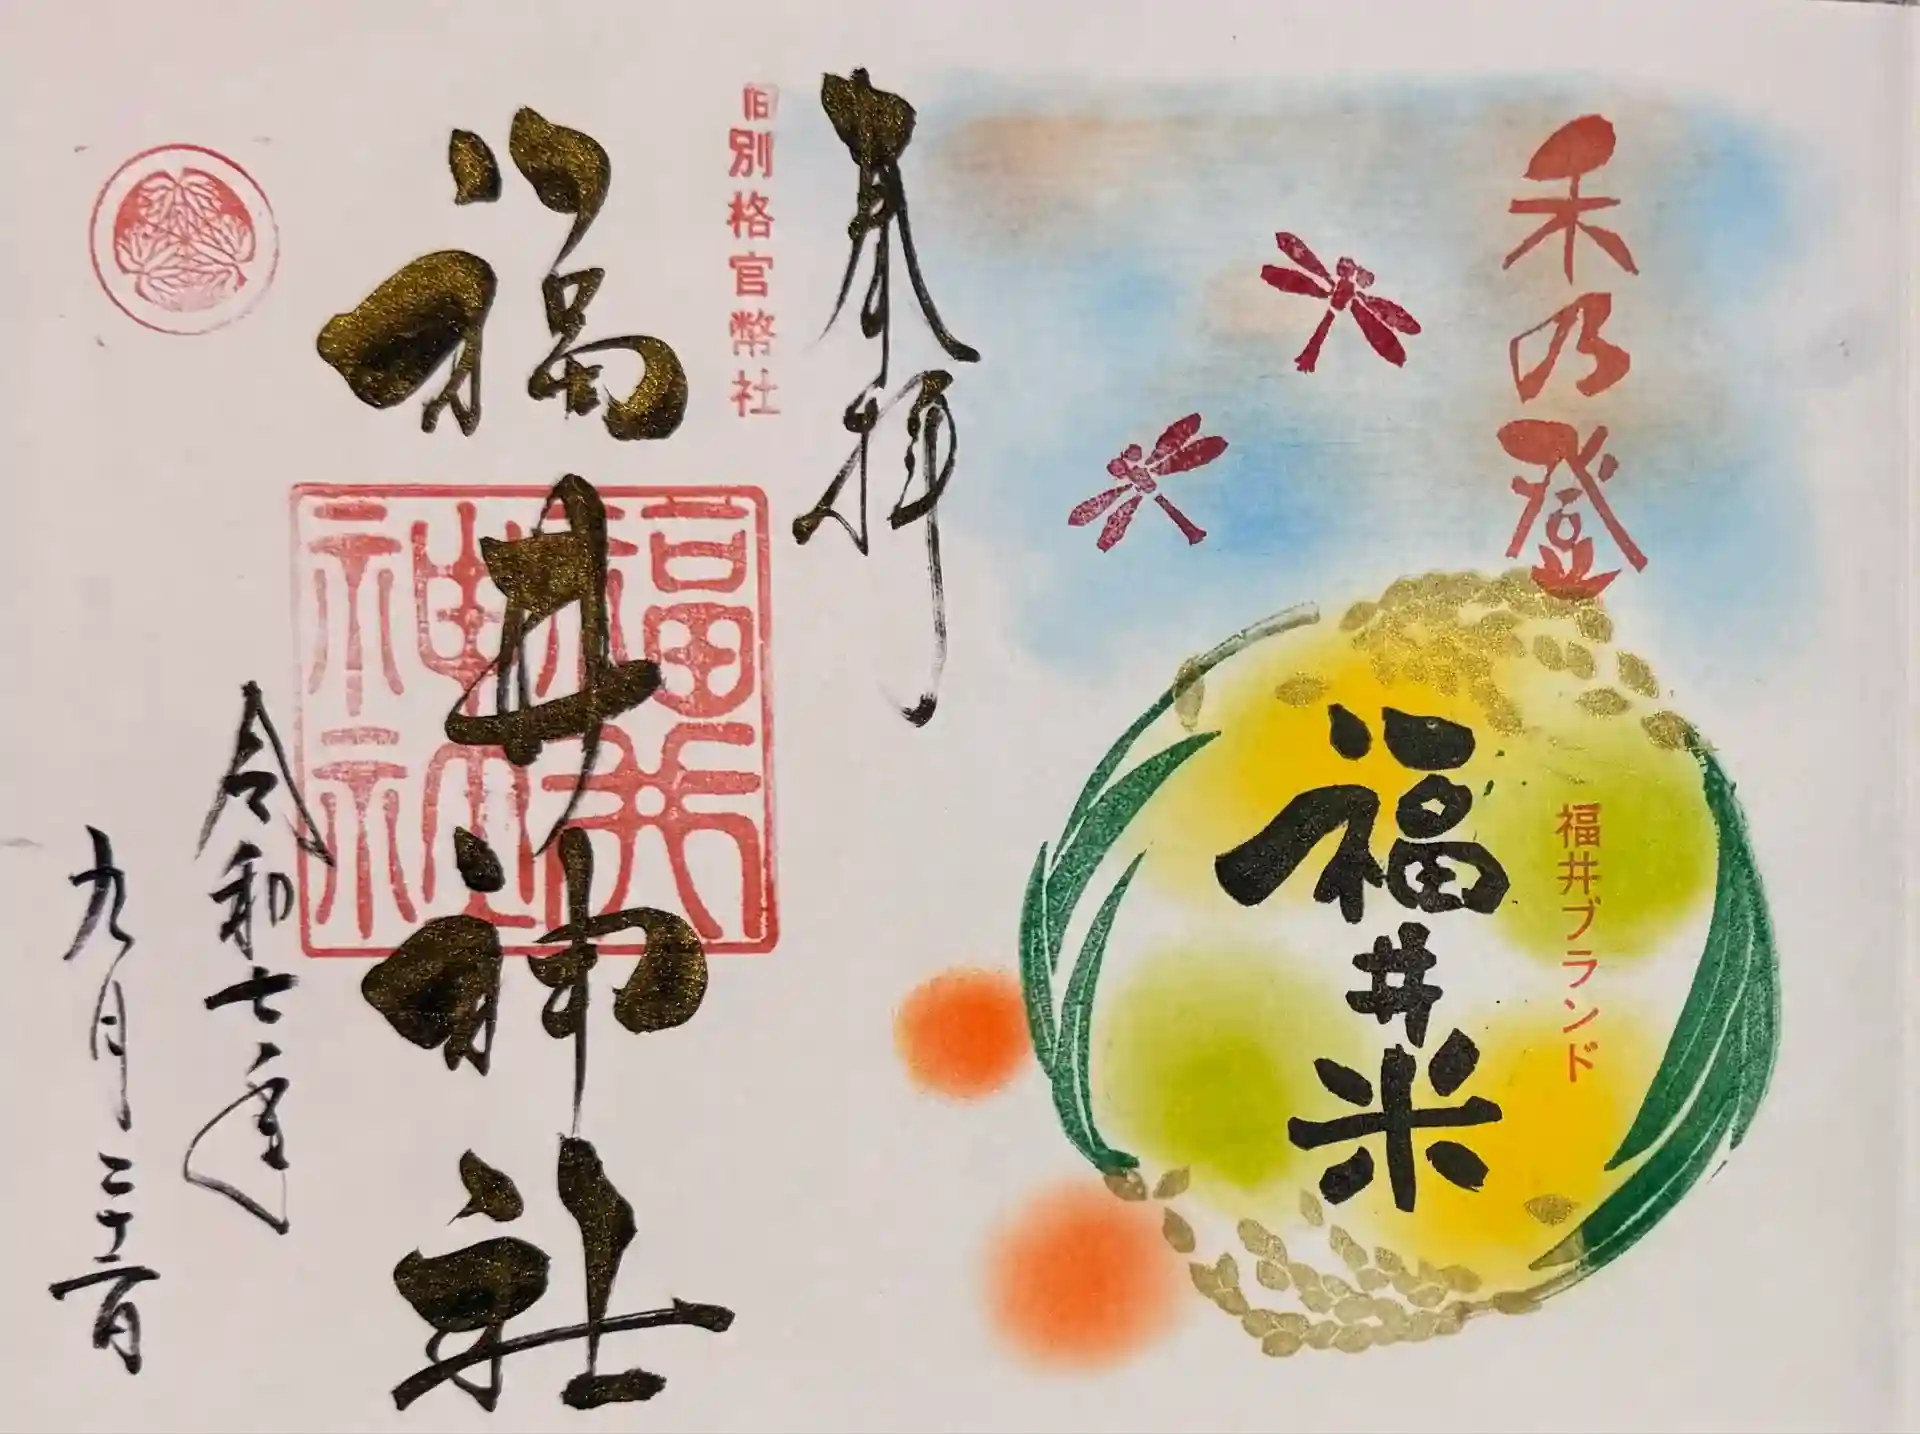 禾乃登
福井ブランド
福井米
奉拝
旧別格官幣社
福井神社
福井神社
令和七年
九月二十二日